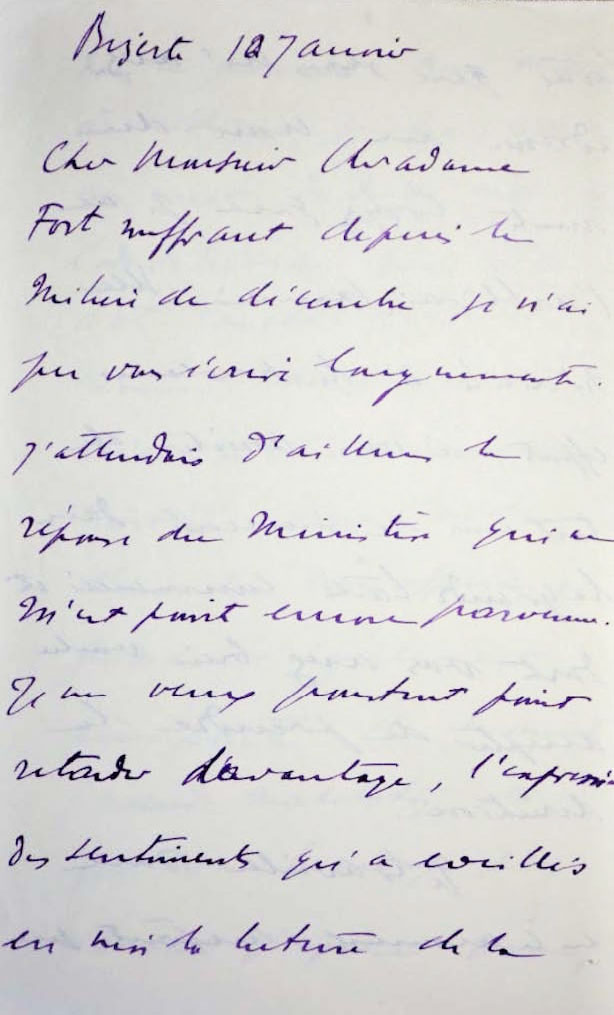 Bizerte 127 janvier
Cher Monsieur Chéradame
Fort souffrant depuis le
Milieu de décembre je n'ai
pu vous écrire longuement.
J'attendais d'ailleurs la
réponse du Ministère qui ne
M'est point encore parvenue.
Je ne veux pourtant point
retarder davantage, l'expression
des sentiments qu'a éveillés
en moi la lecture de la